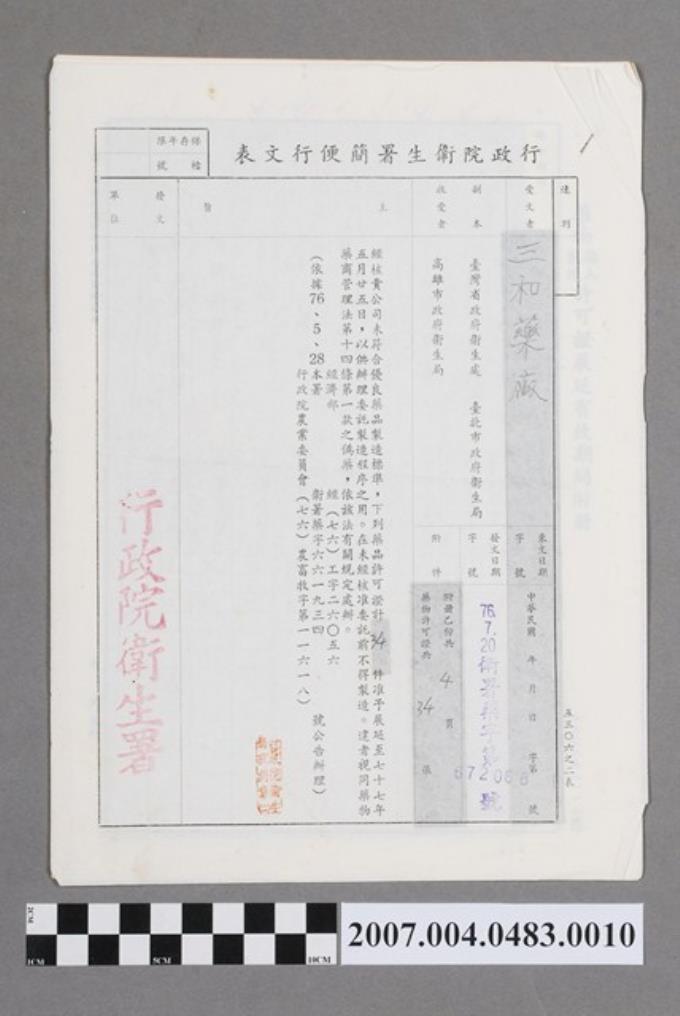 行政院衛生署簡便行文表
保存年限
檔號
速別
受文者
三和藥廠
副本
收受者
臺灣省政府衛生處 臺北市政府衛生局
高雄市政府衛生局
來文日期
字號
中華民國 年 月 日 字第 號
發文日期
字號
76.7.20衛署藥字第 672066 號
附件
附冊乙份共 4 頁
藥物許可證共 34 張
主旨
經核貴公司未符合優良藥品製造標準，下列藥品許可證計 34 件准予展延至七十七年
五月廿五日，以供辦理委託製造程序之用。在未經核准委託前不得製造。違者視同藥物
藥商管理法第十四條第一款之偽藥，依該法有關規定處辦。
經濟部 經（七六）工字二六〇五六
（依據76、5、28本署 衛署藥字六六一九三四 號公告辦理）
行政院農業委員會（七六）農畜牧字第一一六一八）
發文
單位
行政院衛生署
五三〇六之二表
2CM
1CM
5CM
10CM
2007.004.0483.0010